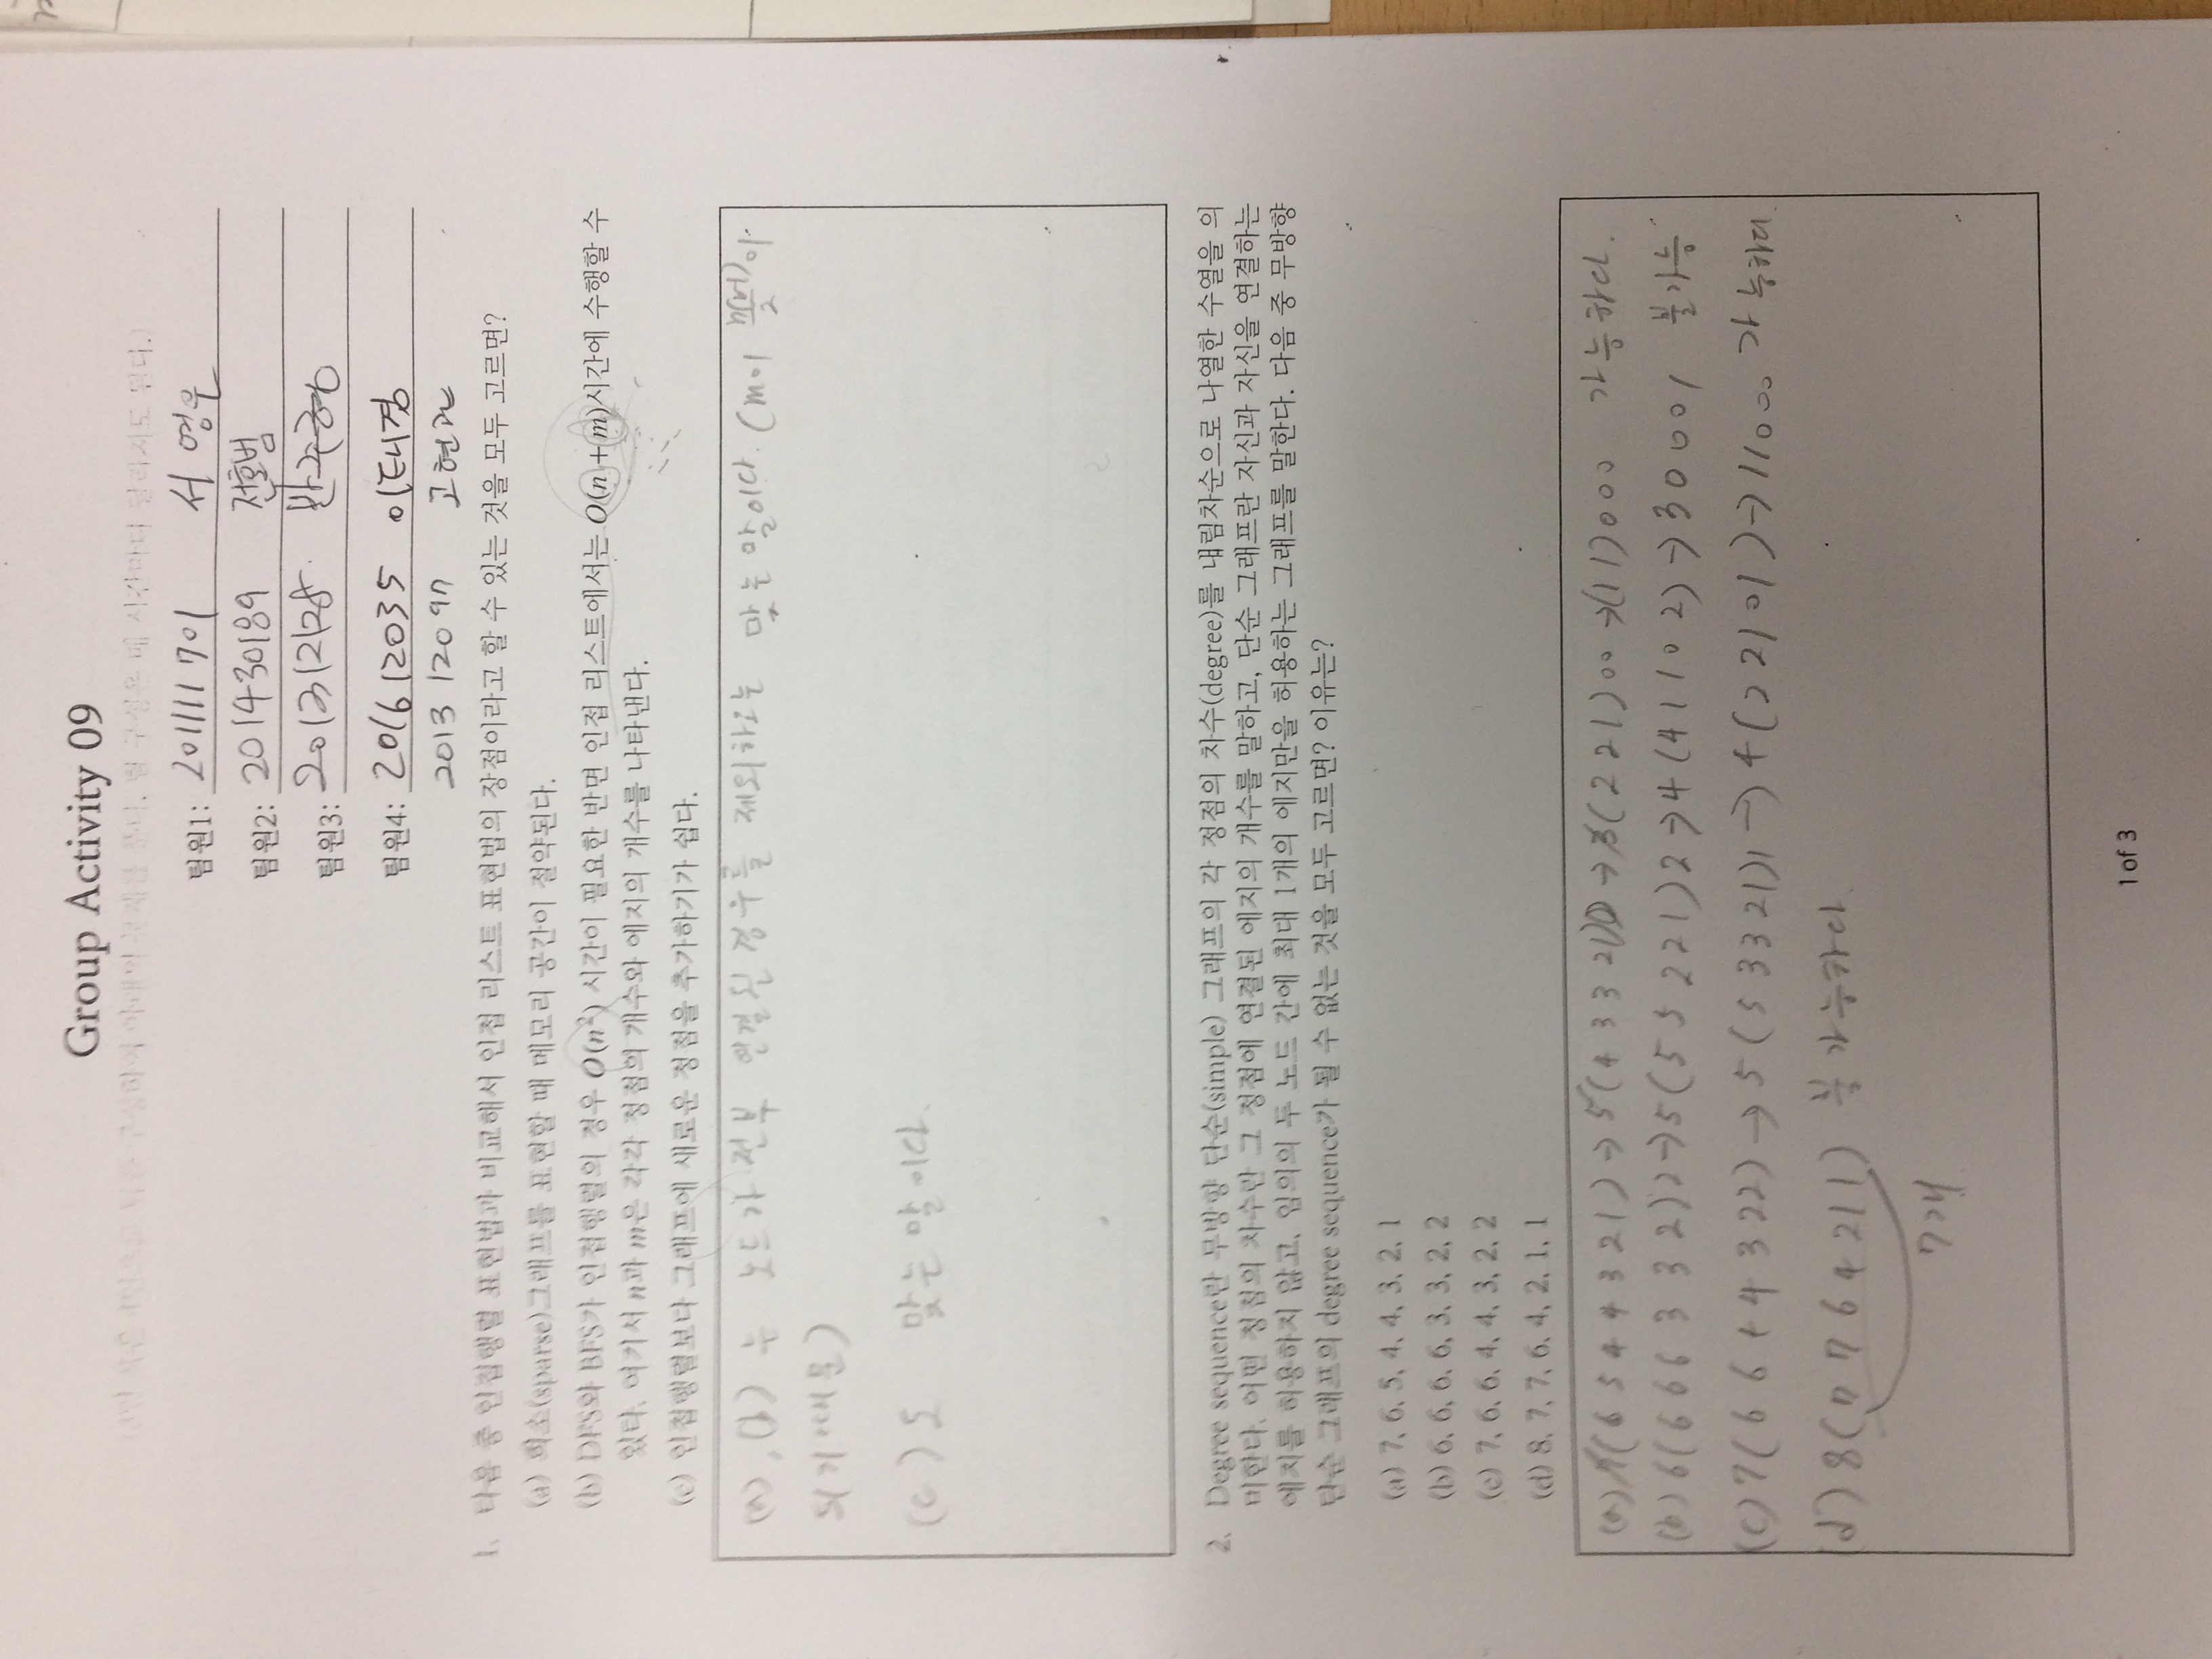 Group Activity 09
팀원1: 201111701 서영우
팀원2: 201430189 전호범
팀원3: 201312128 반주형
팀원4: 201612035 이태경
201312097
1. 다음 중 인접행렬 표현법과 비교해서 인접 리스트 표현법의 장점이라고 할 수 있는 것을 모두 고르면?
(a) 희소(sparse)그래프를 표현할 때 메모리 공간이 절약된다.
(b) DFS와 BFS가 인접행렬의 경우 O(n²) 시간이 필요한 반면 인접 리스트에서는 O(n+m)시간에 수행할 수
있다. 여기서 n과 m은 각각 정점의 개수와 에지의 개수를 나타낸다.
(c) 인접행렬보다 그래프에 새로운 정점을 추가하기가 쉽다.
(a), (b) 는 노드가 전부 연결된 경우를 제외하고는 맞는 말이다. (m이 n(n-1)/2 이
되기 때문)
(c) 도 맞는 말이다.
2. Degree sequence란 무방향 단순(simple) 그래프의 각 정점의 차수(degree)를 내림차순으로 나열한 수열을 의
미한다. 어떤 정점의 차수란 그 정점에 연결된 에지의 개수를 말하고, 단순 그래프란 자신과 자신을 연결하는
에지를 허용하지 않고, 임의의 두 노드 간에 최대 1개의 에지만을 허용하는 그래프를 말한다. 다음 중 무방향
단순 그래프의 degree sequence가 될 수 없는 것을 모두 고르면? 이유는?
(a) 7, 6, 5, 4, 4, 3, 2, 1
(b) 6, 6, 6, 6, 3, 3, 2, 2
(c) 7, 6, 6, 4, 4, 3, 2, 2
(d) 8, 7, 7, 6, 4, 2, 1, 1
(a) 7(6 5 4 4 3 2 1) → 5(4 3 3 2 1)0 → 3(2 2 1)00 → (1 1)000 가능하다.
(b) 6(6 6 6 3 3 2)2 → 5(5 5 2 2 1)2 → 4(4 1 1 0 2) → 3 0 0 0 1 불가능
(c) 7(6 6 4 4 3 2 2) → 5(5 3 3 2 1)1 → 4(2 2 1 0 1) → 11000 가능하다.
(d) 8(7 7 6 4 2 1 1) 불가능하다.
7개
1 of 3